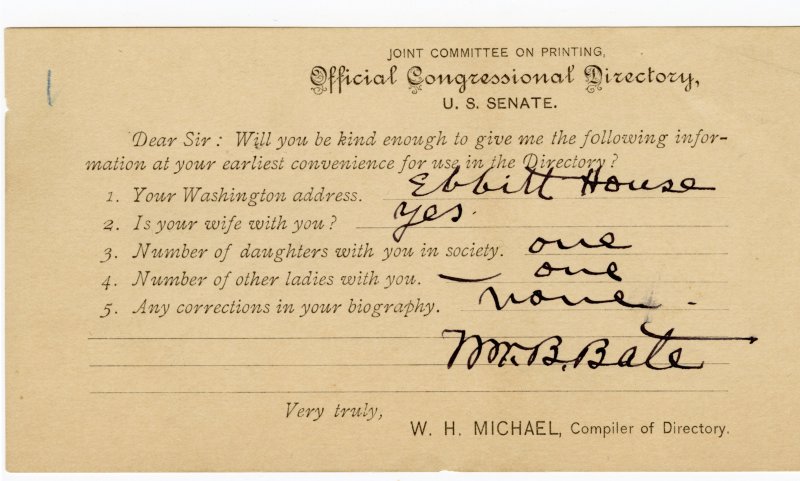 JOINT COMMITTEE ON PRINTING,
Official Congressional Directory,
U. S. SENATE.
Dear Sir: Will you be kind enough to give me the following infor-
mation at your earliest convenience for use in the Directory?
1. Your Washington address. Ebbitt House
2. Is your wife with you? yes.
3. Number of daughters with you in society. one
4. Number of other ladies with you. — one
5. Any corrections in your biography. none -
Wm. B. Bate
Very truly,
W. H. MICHAEL, Compiler of Directory.